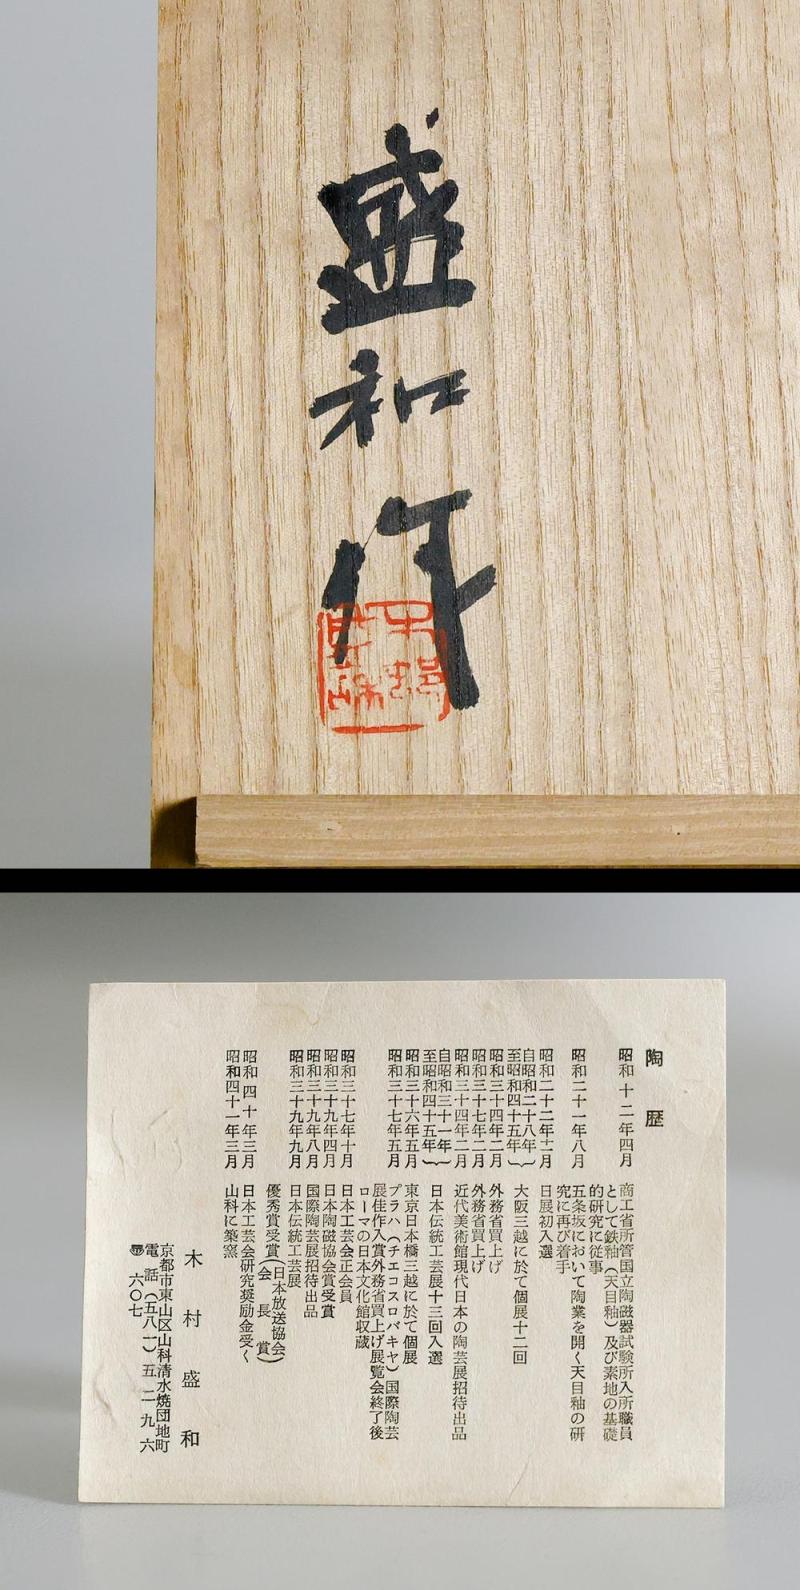 盛和作
陶歴
昭和十二年四月 商工省所管国立陶磁器試験所入所職員
として鉄釉（天目釉）及び素地の基礎
的研究に従事
昭和二十一年八月 五条坂において陶業を開く天目釉の研
究に再び着手
昭和二十二年十一月 日展初入選
自昭和二十八年
至昭和四十五年 大阪三越に於て個展十二回
昭和三十四年二月 外務省買上げ
昭和三十七年二月 外務省買上げ
昭和三十四年二月 近代美術館現代日本の陶芸展招待出品
自昭和三十一年
至昭和四十五年 日本伝統工芸展十三回入選
昭和三十六年五月 東京日本橋三越に於て個展
昭和三十七年五月 プラハ（チエコスロバキヤ）国際陶芸
展佳作入賞外務省買上げ展覧会終了後
ローマの日本文化館収蔵
昭和三十七年十月 日本工芸会正会員
昭和三十九年四月 日本陶磁協会賞受賞
昭和三十九年八月 国際陶芸展招待出品
昭和三十九年九月 日本伝統工芸展
優秀賞受賞（日本放送協会会長賞）
昭和四十年三月 日本工芸会研究奨励金受く
昭和四十一年三月 山科に築窯
木村盛和
京都市東山区山科清水焼団地町
電話（五八一）五二九六
六〇七